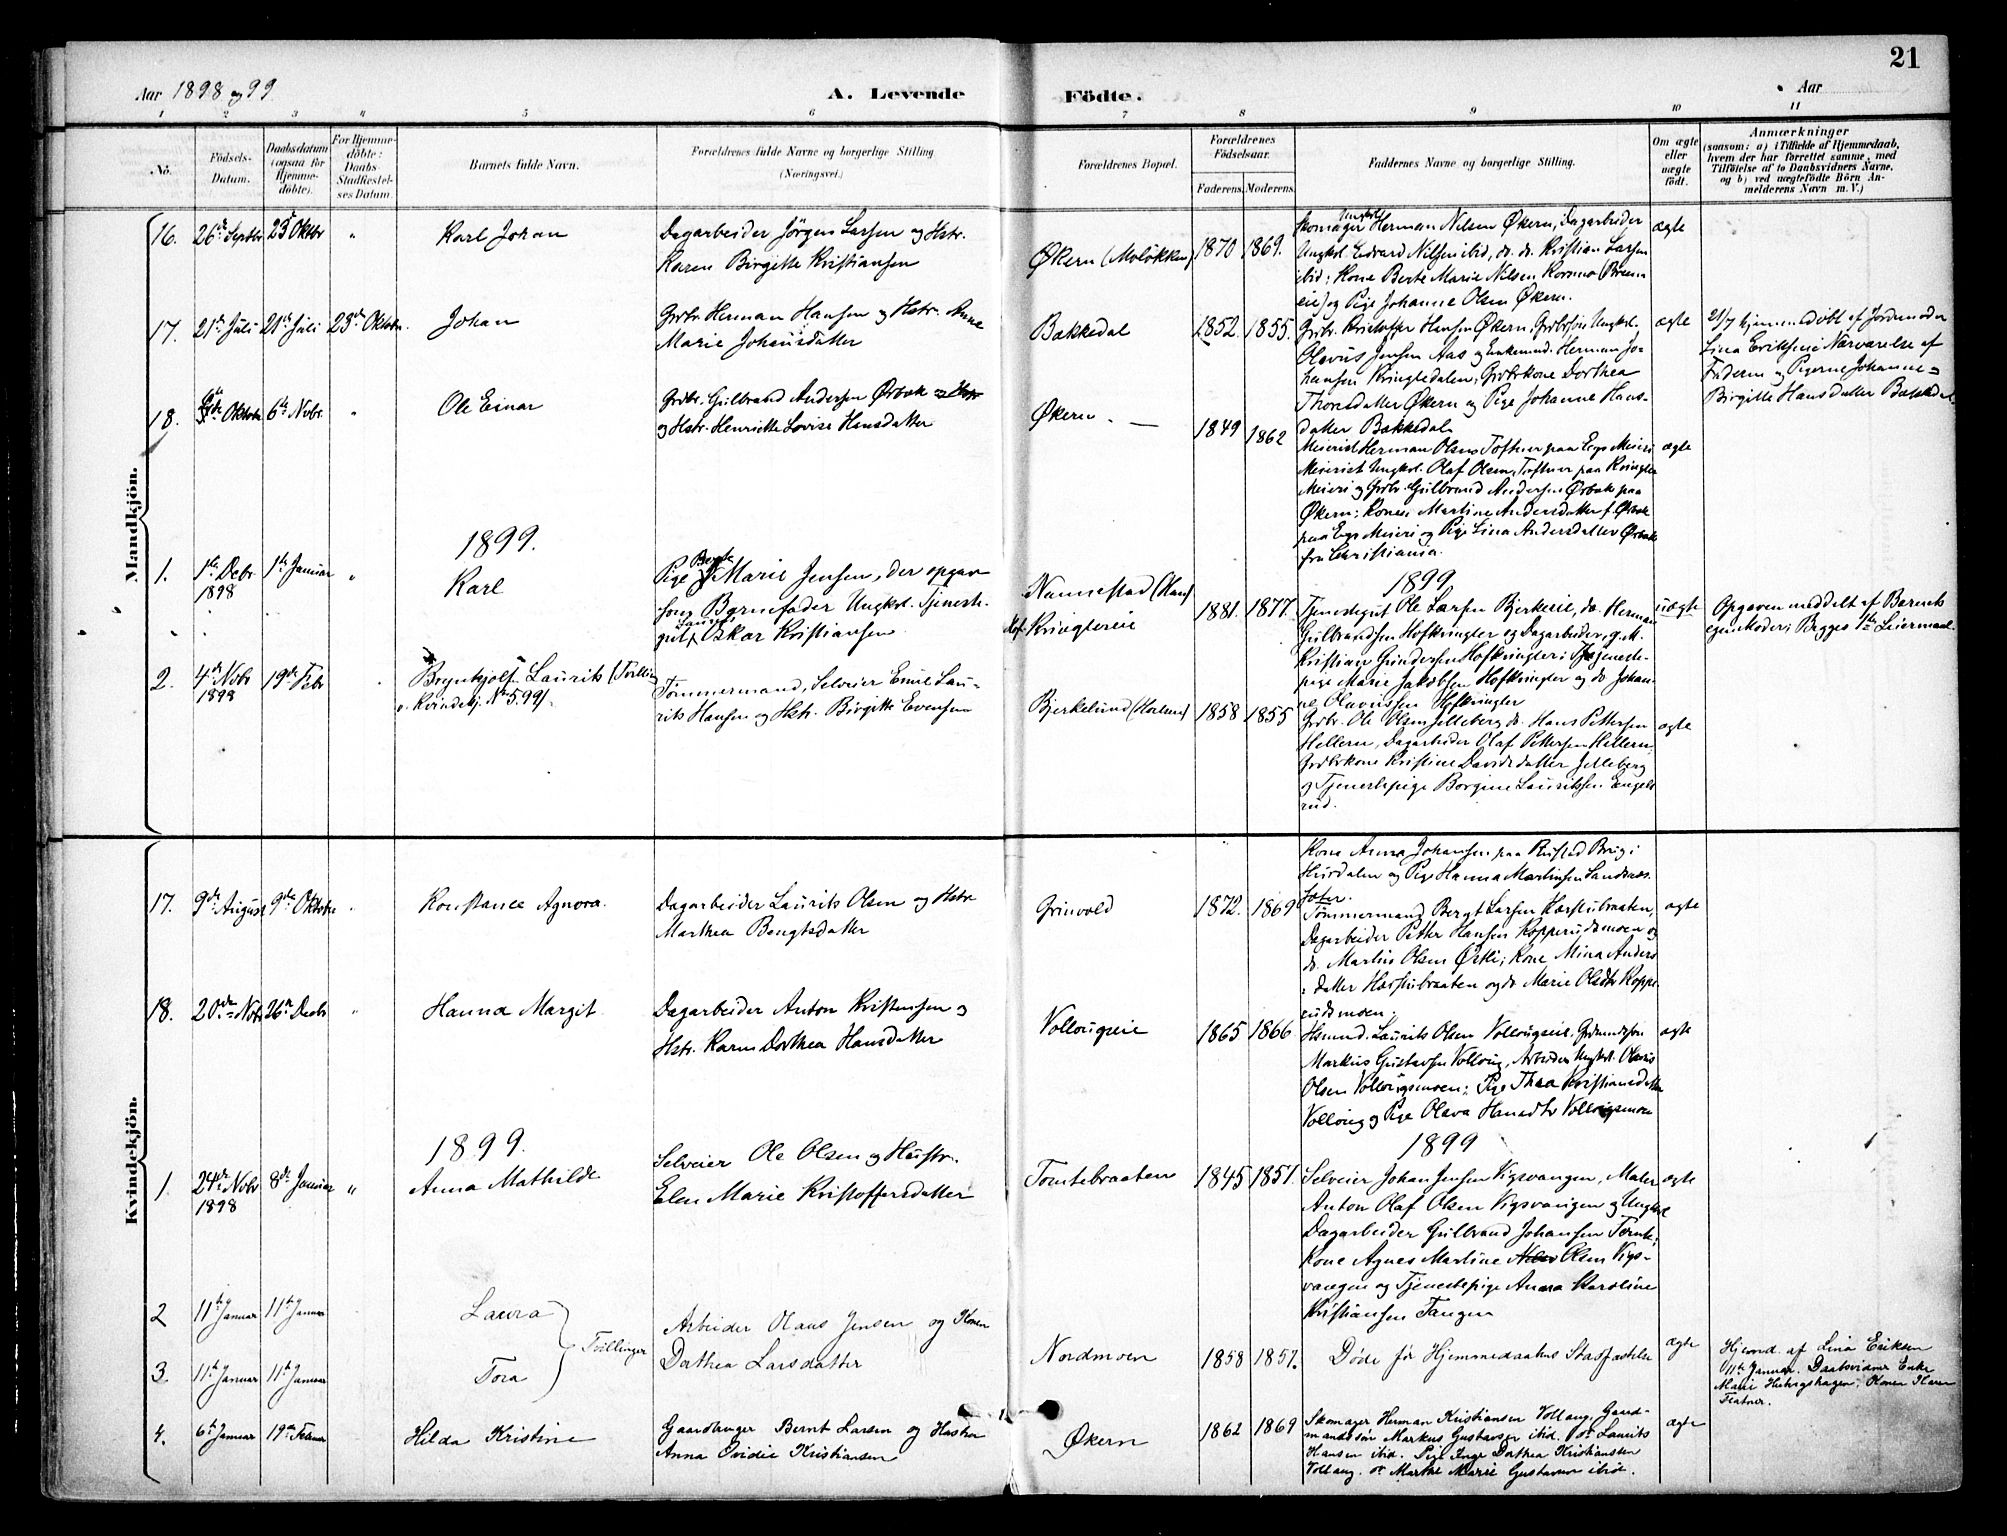 21
Aar 1898 og 99
A. Levende Födte.
Aar
1 2 3 4 5 6 7 8 9 10 11
No.
Födsels-Datum.
Daabsdatum (ogsaa for Hjemme-döbte).
For Hjemme-döbte: Daabs Stadfæstel-ses Datum.
Barnets fulde Navn.
Forældrenes fulde Navne og borgerlige Stilling (Næringsvei.)
Forældrenes Bopæl.
Forældrenes Födselsaar.
Faderens. Moderens.
Faddernes Navne og borgerlige Stilling.
Om ægte eller uægte födt.
Anmærkninger
(saasom: a) i Tilfælde af Hjemmedaab,
hvem der har forrettet samme, med
Tilföielse af to Daabsvidners Navne,
og b) ved uægtefödte Börn An-
melderens Navn m. V.)
Mandkjön.
16. 26de Septbr 23d Oktbr " Karl Johan
Dagarbeider Jörgen Larsen og Hstr.
Karen Birgitte Kristiansen
Økern (Moløkken) 1870 1869.
Skomager Ungkal Herman Nilsen Økern, Dagarbeider
Ungkal. Edvard Nilsen ibid, do. do. Kristian Larsen
ibid; Kone Berte Marie Nilsen
eie) og Pige Johanne Olsen Økern.
ægte
17. 21de Juli 21de Juli 23de Oktober. Johan
Grdbr. Herman Hansen og Hstr. Anne
Marie Johansdatter
Bakkedal 1852. 1855.
Grdbr. Kristoffer Hansen Økern, Ungkal.
Olavus Jensen Aas og Enkemand. Herman Jo-
hansen Kringledalen; Grdbrkone Dorthea
Thorsdatter Økern og Pige Johanne Hans-
datter Bakkedal
ægte
21/7 hjemmedöbt af Jordemoder
Lina Eriksen i Nærværelse af
Faderen og Pigerne Johanne og
Birgitte Hansdatter Bakkedal.
18. Oktober 6te Novbr. " Ole Einar
Grdbr. Gulbrand Andersen Ørbæk
og Hstr. Henriette Lovise Hansdatter
Økern 1849 1862
Meierist Herman Olsen Toftner paa Eegs Meieri
Meierist Ungkal. Olaf Olsen, Toftner paa Kringler
Meieri og Grdbr. Gulbrand Andersen Ørbæk paa
Økern; Kone Martine Andersdatter f. Ørbæk
paa Eegs Meieri og Pige Lina Andersdatter Ørbæk
fra Christiania.
ægte
1899.
1. 1ste Debr. 1898 1ste Januar " Karl
Pige Berte Marie Jensen, der opgav
som Barnefader Ungkal. Tjeneste-
gut Laurits Oskar Kristiansen
Nannestad
Kringlereie 1881. 1877.
1899
Tjenestegut Ole Larsen Bjerkeeie, do. Herman
Gulbrandsen Hofkringler og Dagarbeider, g.M.
Kristian Gundersen Hofkringler; Tjeneste-
pige Marie Jakobsen Hofkringler og do Johan-
ne Olavussen Hofkringler
uægte
Opgaven meddelt af Barnets
egen Moder; Begges 1ste Leiermaal.
2. 4de Novbr 1898 19de Febr Brynhjolf Laurits (Tvilling
Kvindekj. No 5. 99).
Tömmermand, Selveier Emil Lau-
rits Hansen og Hstr. Birgitte Evensen
Bjerkelund 1858 1855
Grdbr. Ole Olsen Jelleberg do. Hans Pettersen
Hellern, Dagarbeider Olaf Pettersen Hellern,
Grdbrkone Kristine Davidsdatter Jelleberg
og Tjenestepige Borgine Lauritssen Engels-
rud.
ægte
Kvindekjön.
17. 9de August 9de Oktober Konstance Agnora.
Dagarbeider Laurits Olsen og Hstr
Marthea Bengtsdatter
Grinvold 1872. 1869
Kone Anna Johansen paa Rustad Brug i
Hurdalen og Pige Hanna Martinsen Sandnæs.
Tömmermand Bergt Larsen Hærstubraaten,
Dagarbeider Petter Hansen Kopperudsmoen og
do. Martius Olsen Ørbæk; Kone Mina Anders-
datter Hærstubraaten og do Marie Olsdtr Koppe-
rudsmoen.
ægte
18. 20de Novbr 26de Decbr " Hanna Margit
Dagarbeider Anton Kristensen og
Hstr. Karen Dorthea Hansdatter
Vollougeie 1865 1866
Husmd. Laurits Olsen Vollougseie, Grdmandssön
Markus Gustavsen Volloug, Arbeider Ungkal. Olavus
Olsen Vollougsmoen; Pige Thea Kristiansdatter
Volloug og Pige Olava Hansdtr Vollougsmoen
ægte
1899.
1. 24de Novbr 1898 8de Januar " Anna Mathilde
Selveier Ole Olsen og Hustr.
Elen Marie Kristoffersdatter
Tomtebraaten 1845 1851.
1899
Selveier Johan Jensen Vigsvangen, Maler
Anton Olaf Olsen Vigsvangen og Ungkal
Dagarbeider Gulbrand Johansen Tomte;
Kone Agnes Martine Olsen Vigs-
vangen og Tjenestepige Anna Karoline
Kristiansen Tangen
ægte
2 11te Januar 11te Januar Laura
3. 11te Januar 11te Januar Tora
Tvillinger
Arbeider Olaus Jensen og Konen
Dorthea Larsdatter
Nordmoen 1858 1851.
Døde før Hjemmedaabens Stadfæstelse
ægte
Hjemd. af Lina Eriksen
11te Januar. Daabsvidner Enke
Marie Helvigshagen, Konen Karen
4. 6te Januar 19de Februar Hilda Kristine
Gaardbruger Bernt Larsen og Hustru
Anna Ovidie Kristiansen
Økern 1862 1869
Skomager Herman Kristiansen Vollaug, Gaard-
mandssön Markus Gustavsen ibid. do Laurits
Hansen ibid. Pige Inga Dorthea Kristiansen
Vollaug. do Marthe Marie Gustavsen ibid.
ægte